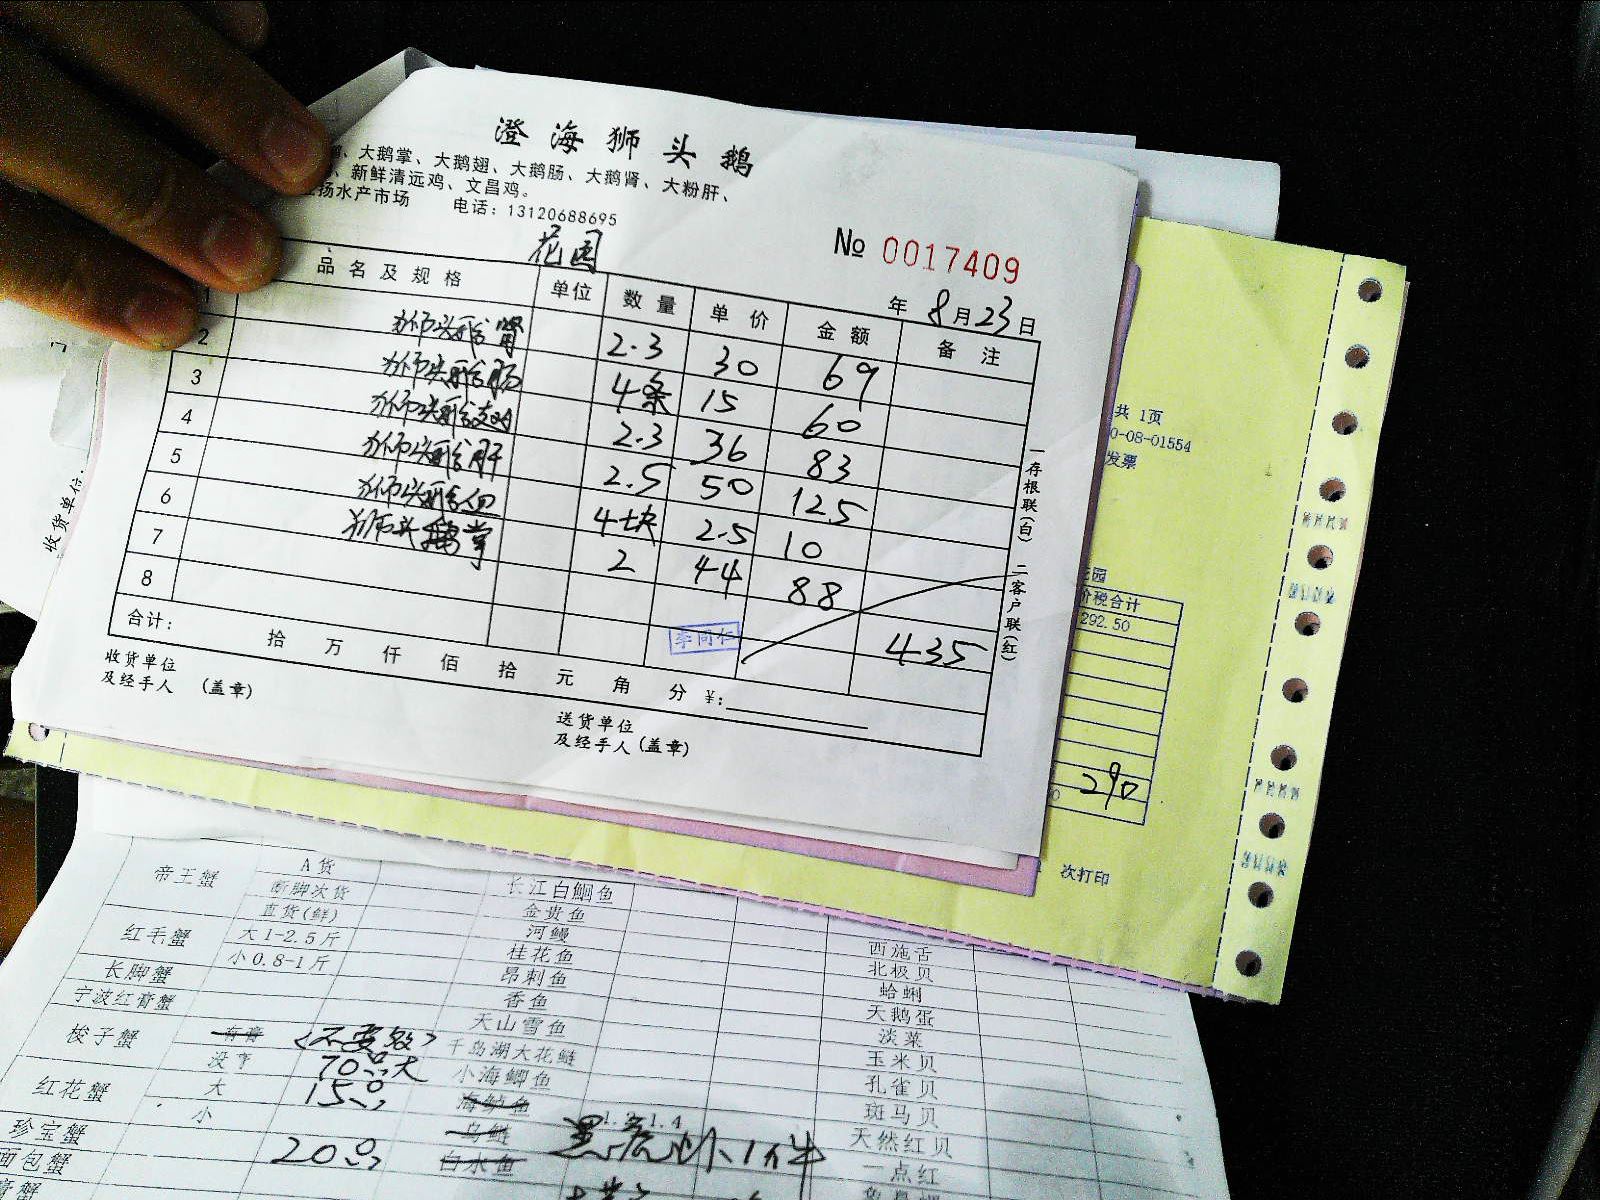 澄海狮头鹅
、大鹅掌、大鹅翅、大鹅肠、大鹅肾、大粉肝、
、新鲜清远鸡、文昌鸡。
扬水产市场 电话：13120688695
花园
№ 0017409
年 8月23日
品名及规格 单位 数量 单价 金额 备注
1 狮头鹅肾 2.3 30 69
2 狮头鹅肠 4条 15 60
3 狮头鹅 2.3 36 83
4 狮头鹅肝 2.5 50 125
5 狮头鹅 4块 2.5 10
6 狮头鹅掌 2 44 88
7
8 435
李同仁
合计： 拾 万 仟 佰 拾 元 角 分 ¥:
收货单位
及经手人 (盖章)
送货单位
及经手人(盖章)
一存根联(白) 二客户联(红)
收货单位:
共 1页
0-08-01554
发票
花园
价税合计
292.50
290
次打印
帝王蟹 A货
断脚次货 长江白鮰鱼
直货(鲜) 金贵鱼
红毛蟹 大1-2.5斤 河鳗
小0.8-1斤 桂花鱼 西施舌
长脚蟹 昂刺鱼 北极贝
宁波红膏蟹 香鱼 蛤蜊
梭子蟹 有膏 <不要 > 天山雪鱼 天鹅蛋
没亨 70 大 千岛湖大花鲢 淡菜
红花蟹 大 15 小海鲫鱼 玉米贝
小 海鲈鱼 孔雀贝
珍宝蟹 乌鲢 1.4 斑马贝
面包蟹 20 白水鱼 1件 天然红贝
膏蟹 一点红